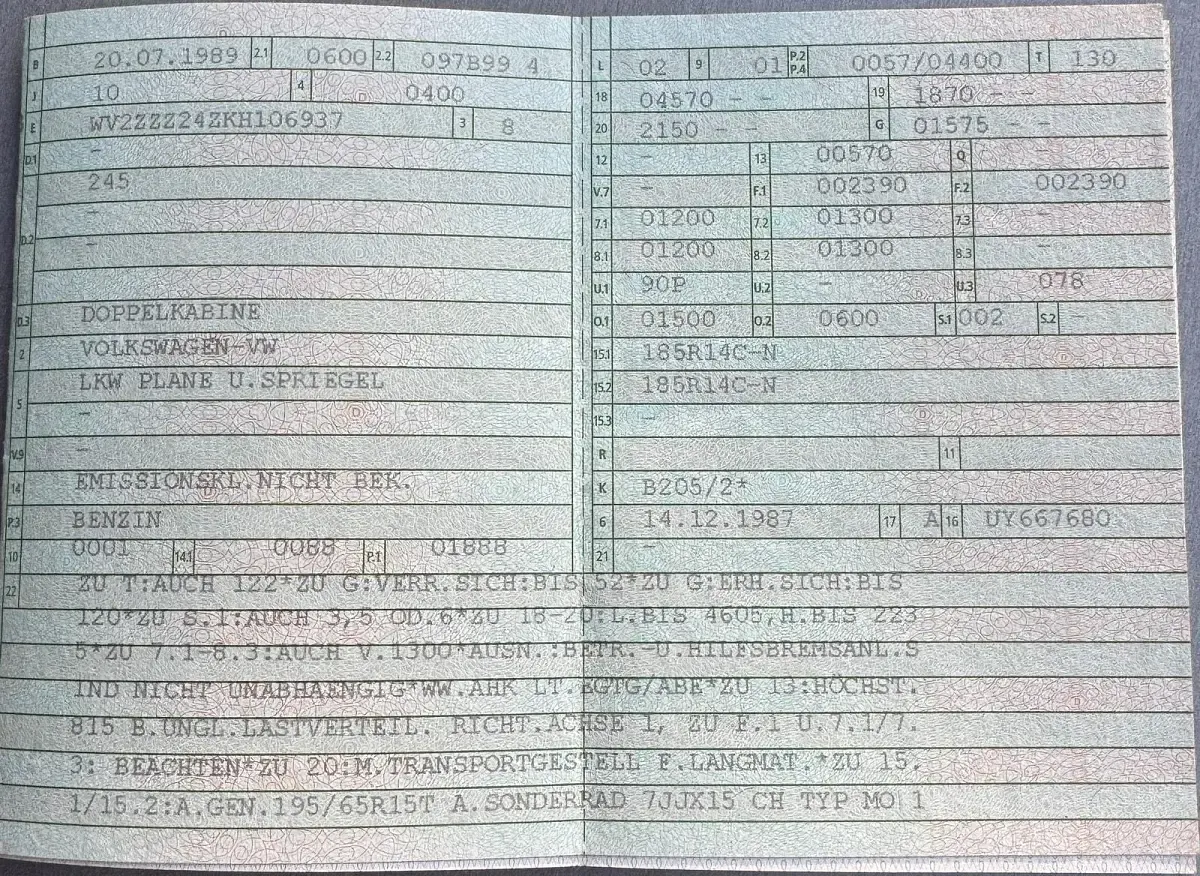 B 20.07.1989 2.1 0600 2.2 097B99 4
J 10 4 0400
E WV2ZZZ24ZKH106937 3 8
D.1 –
245
–
D.2 –
D.3 DOPPELKABINE
2 VOLKSWAGEN-VW
LKW PLANE U.SPRIEGEL
5 –
V.9 –
14 EMISSIONSKL.NICHT BEK.
P.3 BENZIN
10 0001 14.1 0088 P.1 01888
L 02 9 01 P.2 P.4 0057/04400 T 130
18 04570 – – 19 1870 – –
20 2150 – – G 01575 – –
12 – 13 00570 Q –
V.7 – F.1 002390 F.2 002390
7.1 01200 7.2 01300 7.3 –
8.1 01200 8.2 01300 8.3 –
U.1 90P U.2 – U.3 078
O.1 01500 O.2 0600 S.1 002 S.2 –
15.1 185R14C-N
15.2 185R14C-N
15.3 –
R 11
K B205/2*
6 14.12.1987 17 A 16 UY667680
21 –
22 ZU T:AUCH 122*ZU G:VERR.SICH:BIS 52*ZU G:ERH.SICH:BIS
120*ZU S.1:AUCH 3,5 OD.6*ZU 18-20:L.BIS 4605,H.BIS 223
5*ZU 7.1-8.3:AUCH V.1300*AUSN.:BETR.-U.HILFSBREMSANL.S
IND NICHT UNABHAENGIG*WW.AHK LT.EGTG/ABE*ZU 13:HÖCHST.
815 B.UNGL.LASTVERTEIL. RICHT.ACHSE 1, ZU F.1 U.7.1/7.
3: BEACHTEN*ZU 20:M.TRANSPORTGESTELL F.LANGMAT.*ZU 15.
1/15.2:A.GEN.195/65R15T A.SONDERRAD 7JJX15 CH TYP MO 1